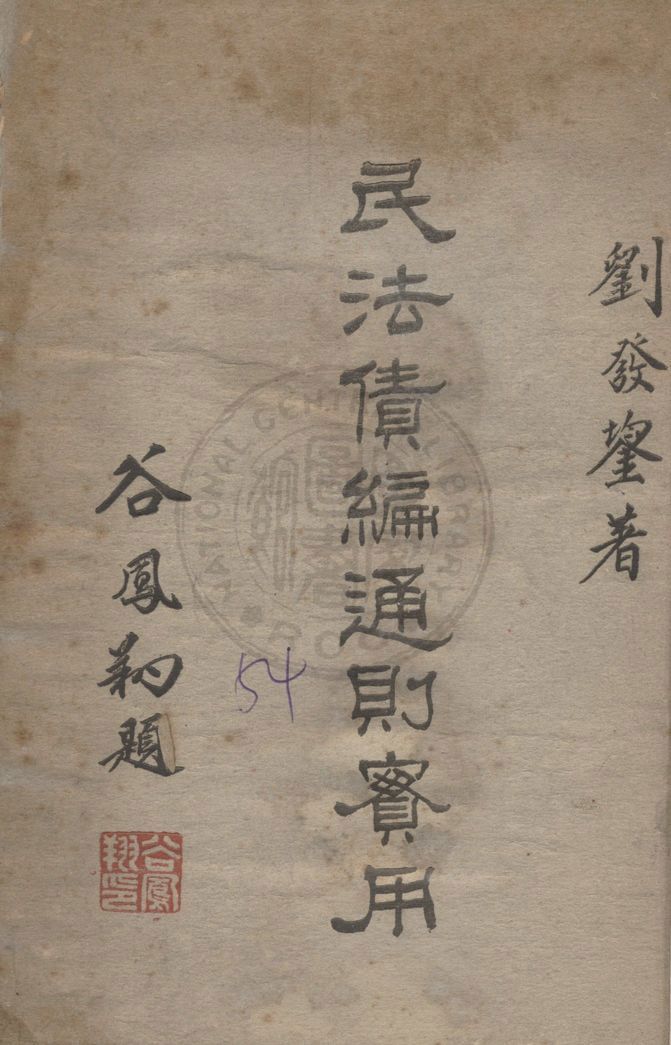 劉發鋆著
民法債編通則實用
谷鳳翔題
谷鳳翔印
54
NATIONAL CENTRAL LIBRARY